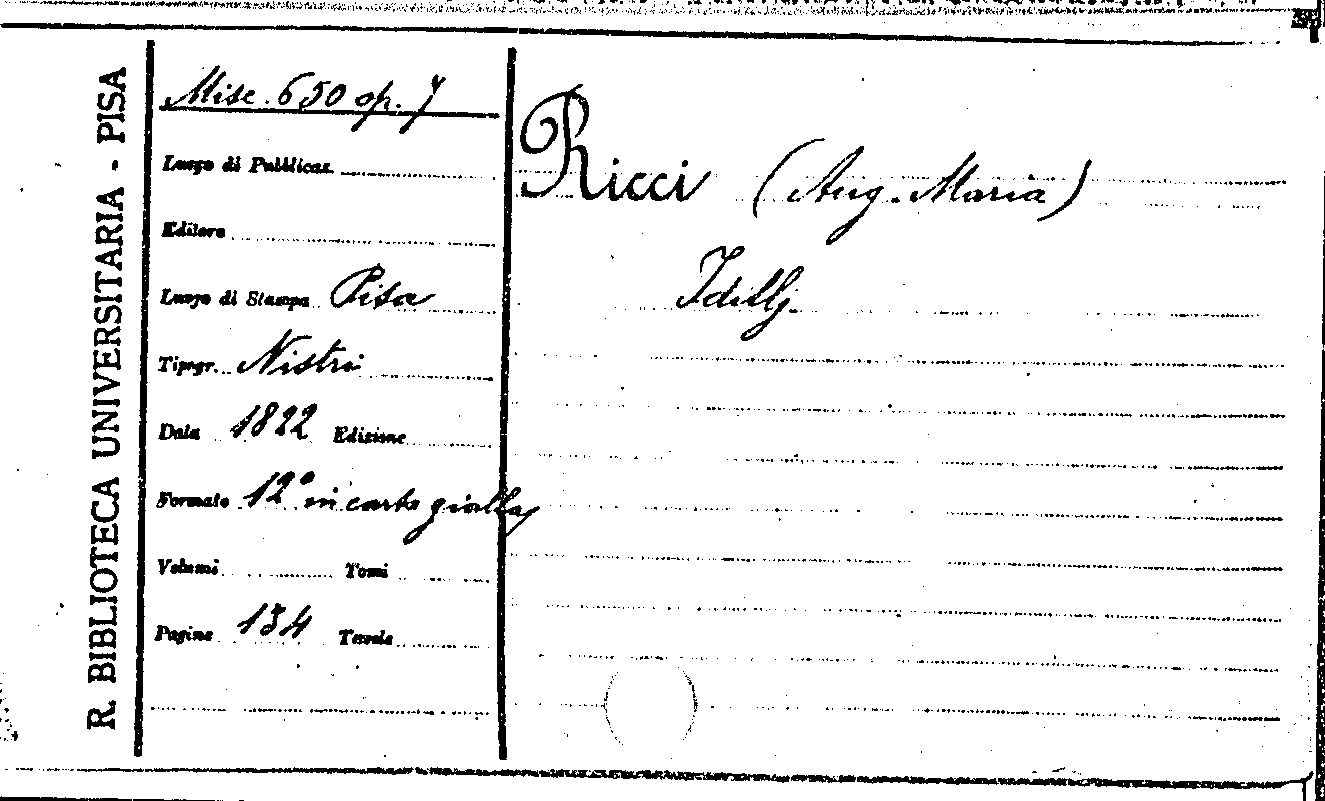 R. BIBLIOTECA UNIVERSITARIA - PISA
Misc. 650 op. 7
Luogo di Pubblicaz.
Editore
Luogo di Stampa Pisa
Tipogr. Nistri
Data 1822 Edizione
Formato 12° in carta gialla
Volumi Tomi
Pagine 134 Tavole
Ricci (Aug. Maria)
Idillj